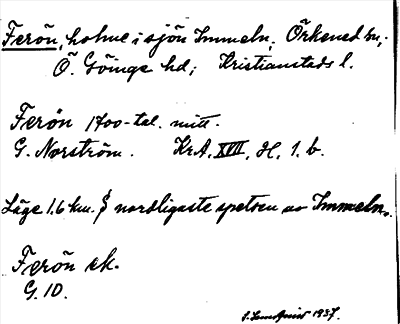 Ferön, holme i sjön Immeln, Örkened sn,
Ö. Göinge hd, Kristianstads l.
Ferön 1700-tal. mitt.
G. Norström. KrA. XVII, H, 1. b.
Läge 1.6 km. S nordligaste spetsen av Immeln.
Ferön ek.
G. 10.
1937.